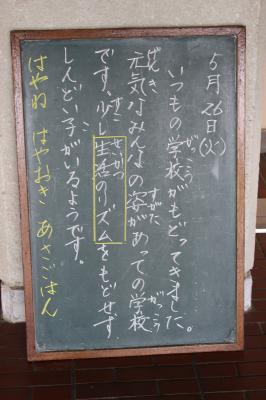 5月26日(火)
いつもの学校がもどってきました。
元気なみんなの姿があっての学校
です。少し生活のリズムをもどせず
しんどい子がいるようです。
はやね はやおき あさごはん